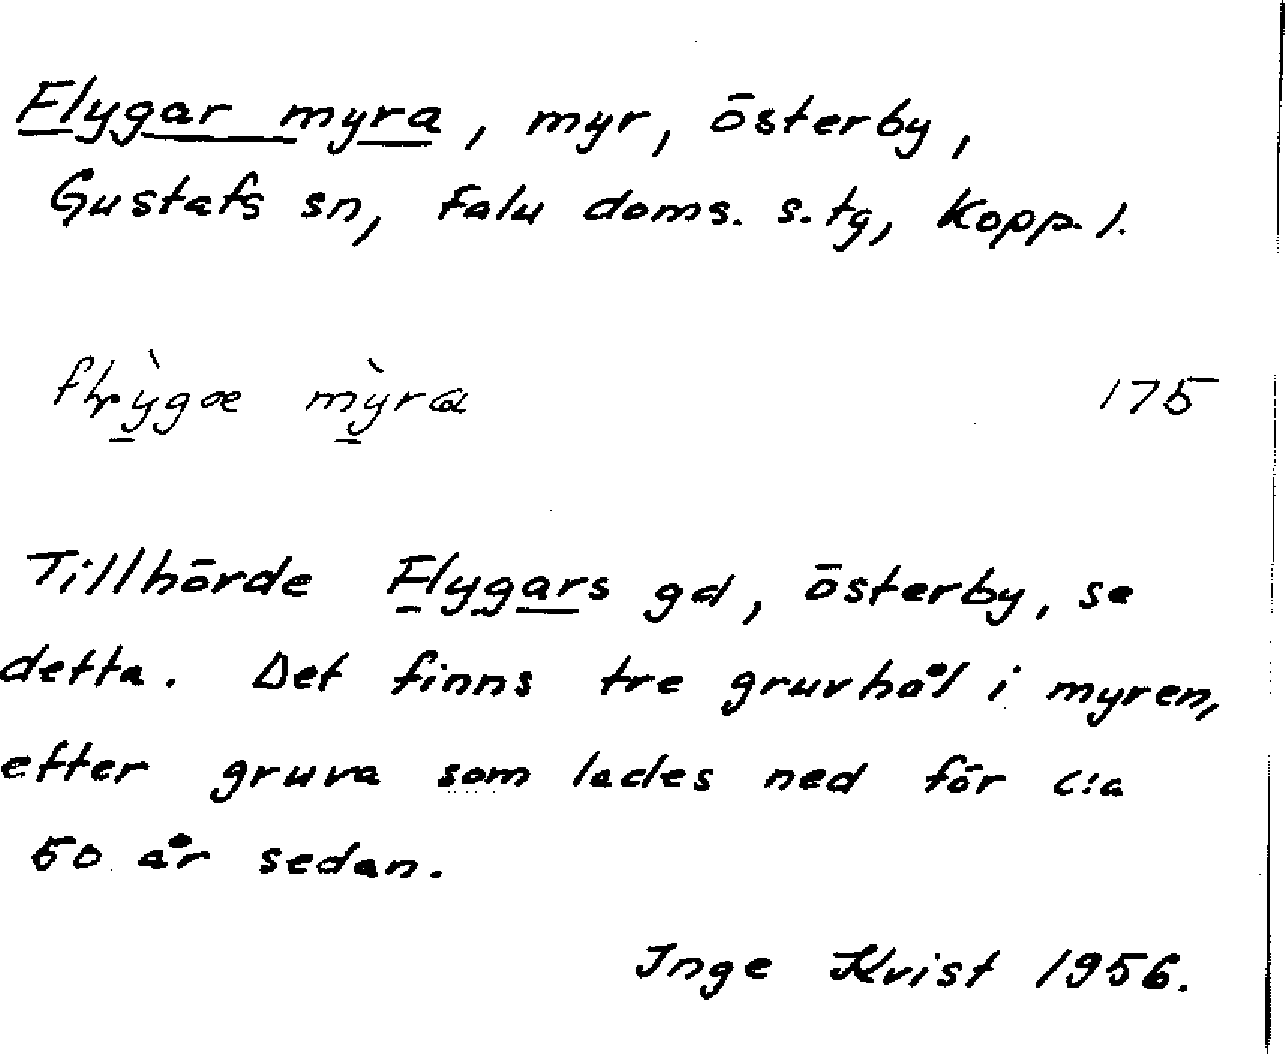 Flygar myra, myr, Österby,
Gustafs sn, Falu doms. s. tg, Kopp. l.
175
Tillhörde Flygars gd, Österby, se
detta. Det finns tre gruvhål i myren,
efter gruva som lades ned för c:a
50 år sedan.
Inge Kvist 1956.